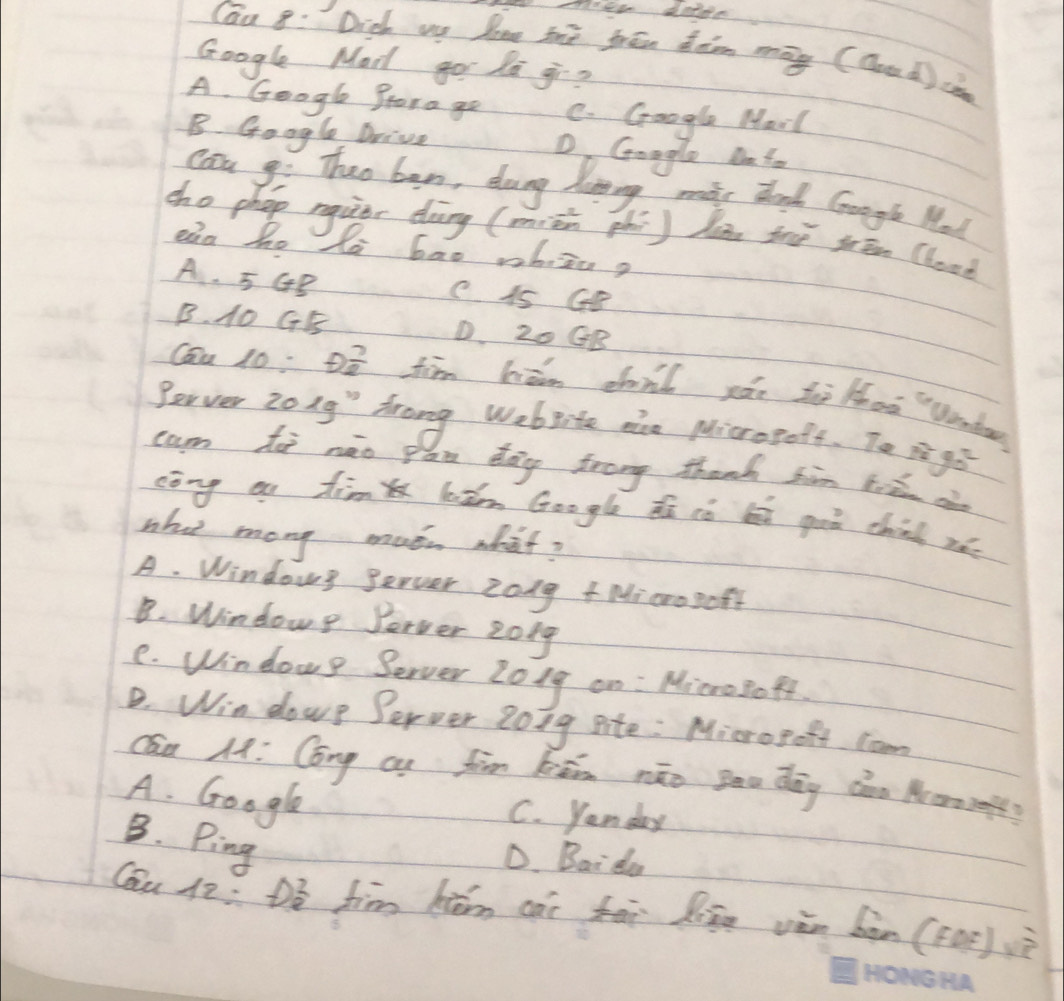 Câu 8: Dịch vụ lưu trữ trên đám mây (Cloud) của
Google Mail gọi là gì?
A. Google Storage C. Google Mail
B. Google Drive D. Google Data
Câu 9: Theo bạn, dung lượng mặc định Google Mail
cho phép người dùng (miễn phí) lưu trữ trên Cloud
của họ là bao nhiêu?
A. 5 GB C. 15 GB
B. 10 GB D. 20 GB
Câu 10: Để tìm kiếm chính xác từ khoá "Windows
Server 2019" trong Website của Microsoft. Ta sẽ gõ
cụm từ nào sau đây trong thanh tìm kiếm của
công cụ tìm kiếm Google để có kết quả chính xác
như mong muốn nhất?
A. Windows Server 2019 + Microsoft
B. Windows Server 2019
C. Windows Server 2019 on: Microsoft.
D. Windows Server 2019 site: Microsoft Com
Câu 11: Công cụ tìm kiếm nào sau đây của Microsoft?
A. Google C. Yandex
B. Ping D. Baidu
Câu 12: Để tìm kiếm các tài liệu văn bản (PDF) về
HONG HA